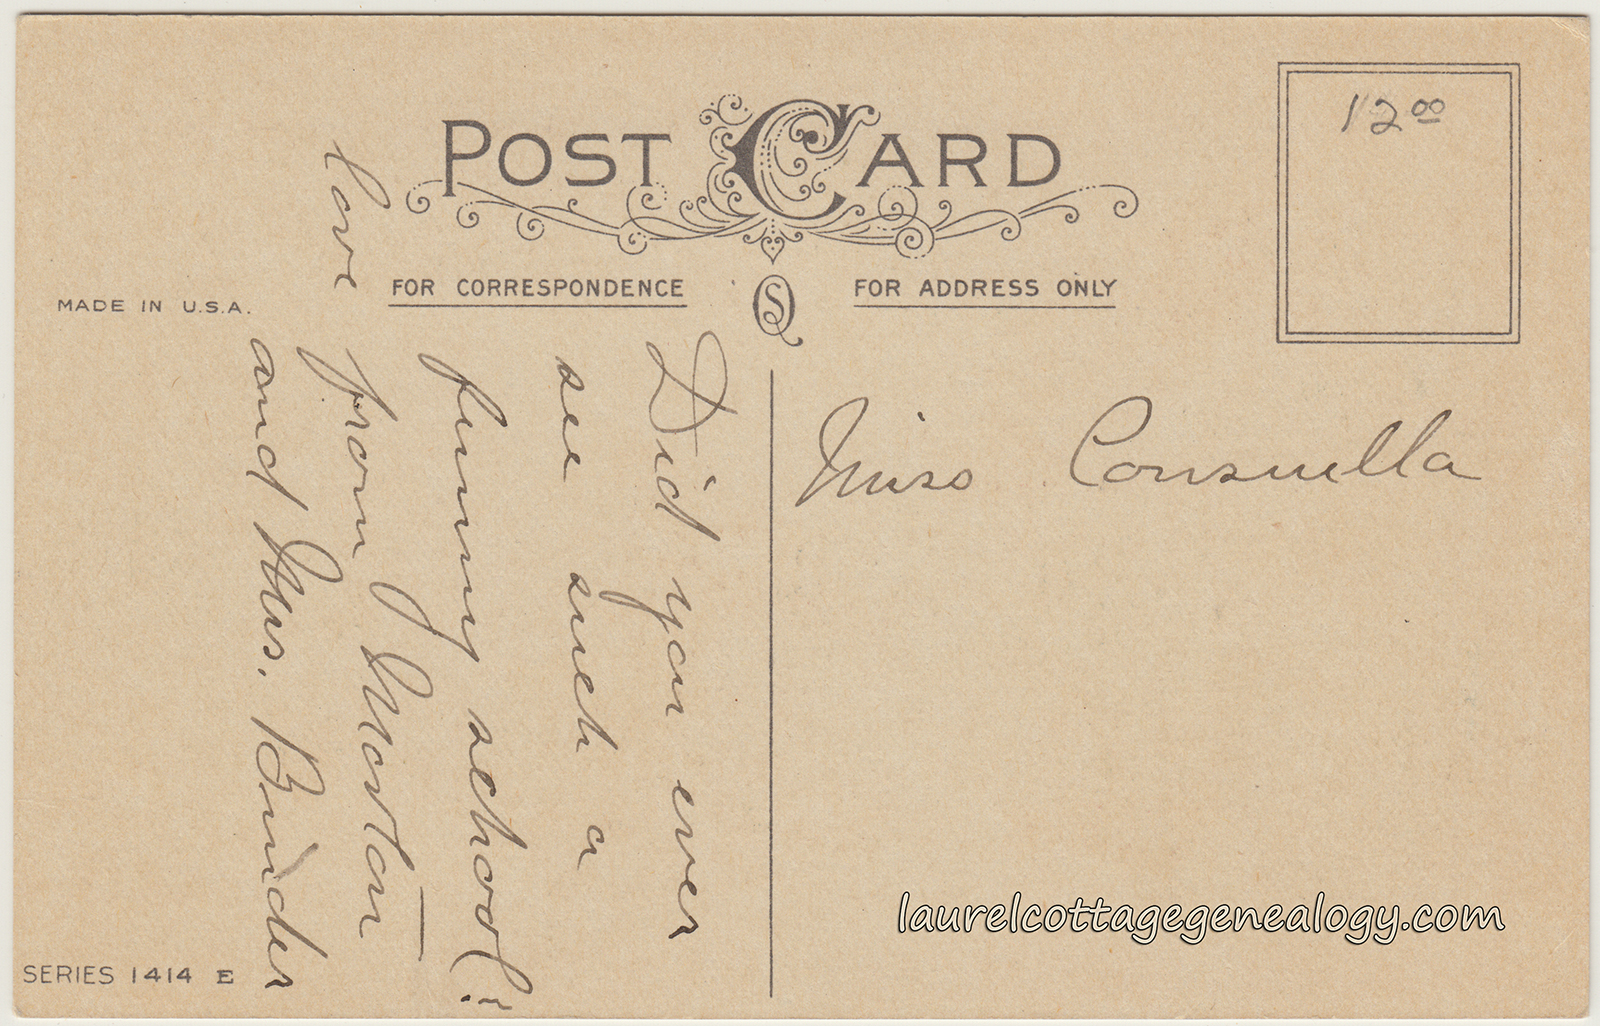 POST CARD
12 00
FOR CORRESPONDENCE
FOR ADDRESS ONLY
MADE IN U.S.A.
Did you ever
see such a
funny school!
love
from Morton
and Mrs. Binder
Miss Consuella
SERIES 1414 E
laurelcottagegenealogy.com